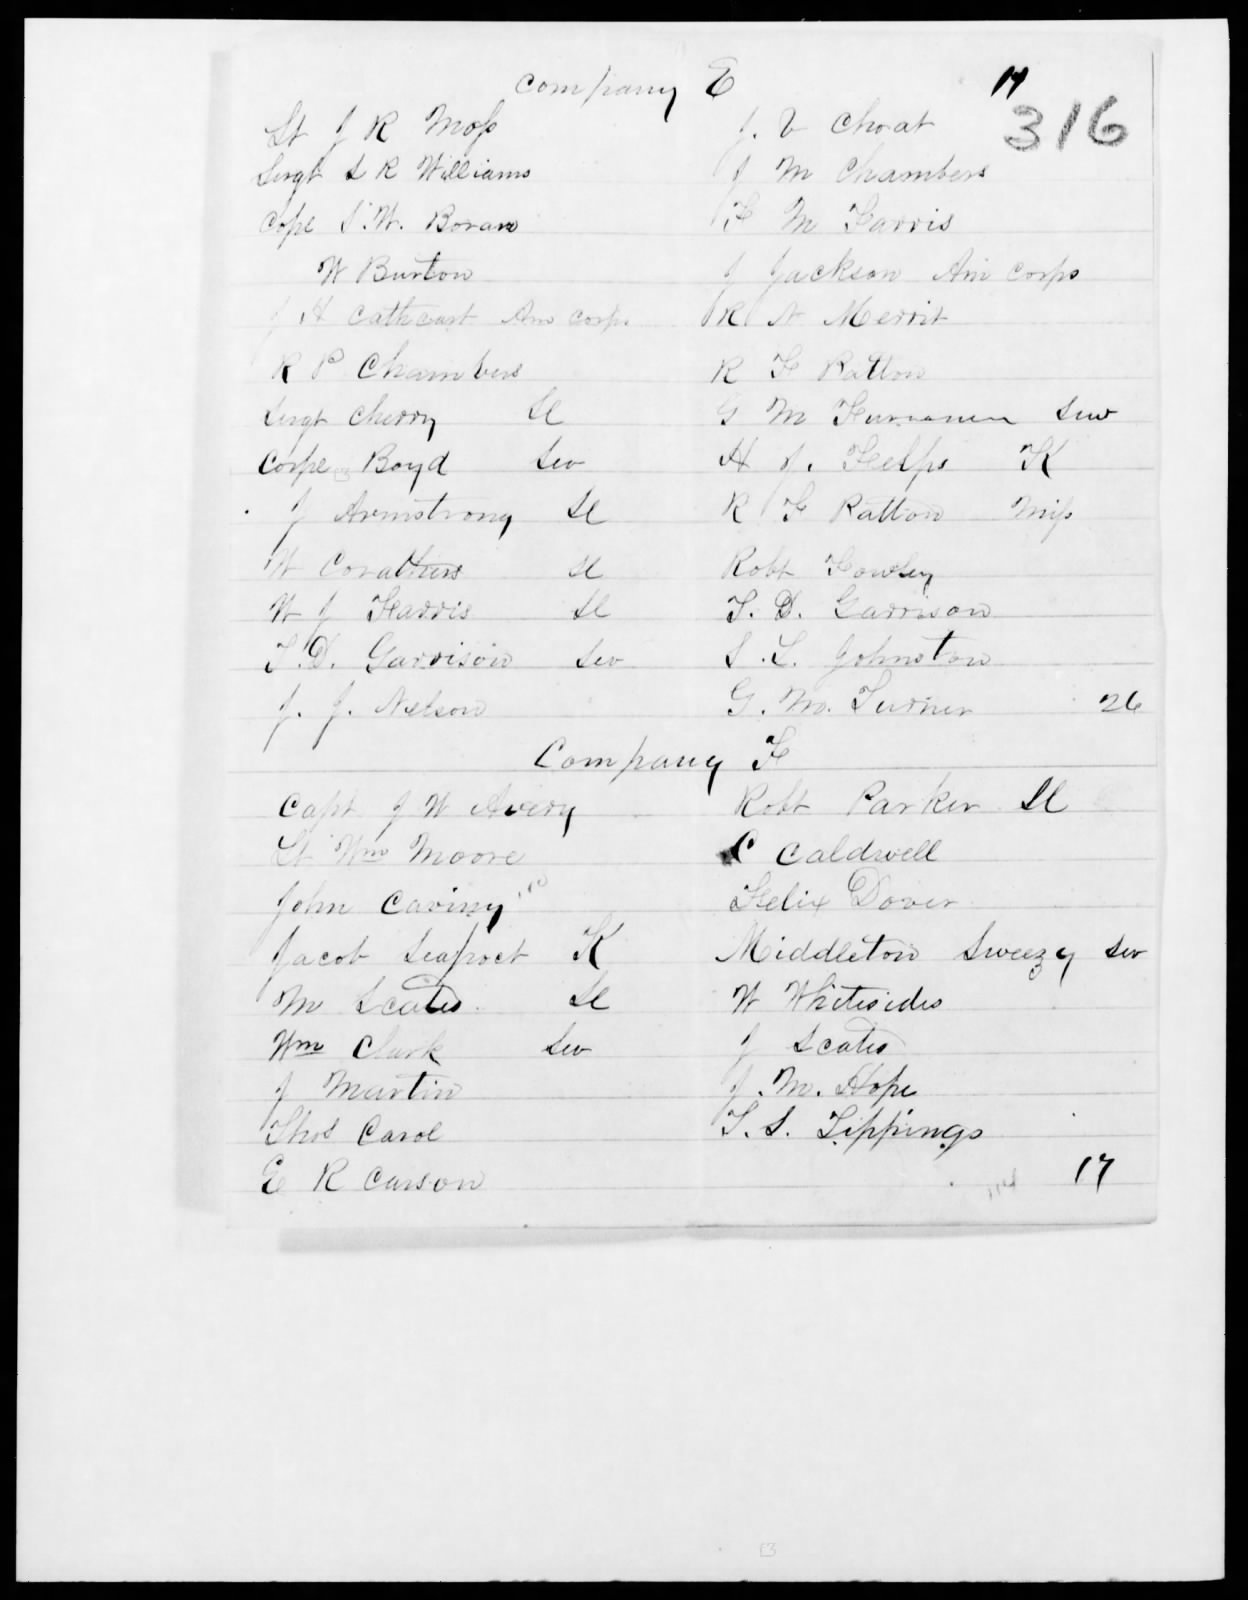 Company E
14
316
Lt J R Moss
Sergt S R Williams
Cope S. W. Boran
W Burton
J H Cathcart Am Corps
R P Chambers
Sergt Cherry Sl
Corpe Boyd Sev
J Armstrong Sl
W Corathers Sl
W J Farris Sl
T. D. Garrison Sev
J. J. Nelson
J. V Choat
J M Chambers
F M Farris
J Jackson Am Corps
R N Merrit
R F Ratton
G M Sev
H J. Felps K
R F Ratton Miss
Robt Fowley
T. D. Garrison
S. L. Johnston
G. M. Turner 26
Company F
Capt J W Avery
Lt Wm Moore
John Caviny
Jacob Seaproct K
M Scates Sl
Wm Clark Sev
J Martin
Thos Carol
E R Carson
Robt Parker Sl
C Caldwell
Felix Dover
Middleton Sweezy Sev
W Whitesides
J Scates
J. M. Hope
T. S. Tippings
17